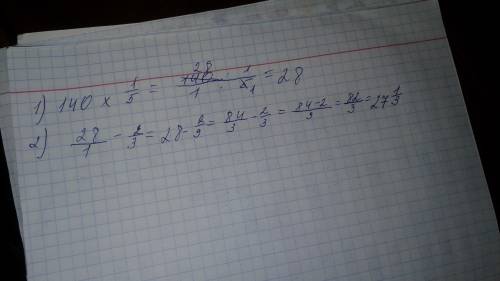 1) 140 × 1/5 = 28 140/1 · 1/5 1 = 28
2) 28/1 - 2/3 = 28 - 2/3 = 84/3 - 2/3 = 84-2/3 = 82/3 = 27 1/3